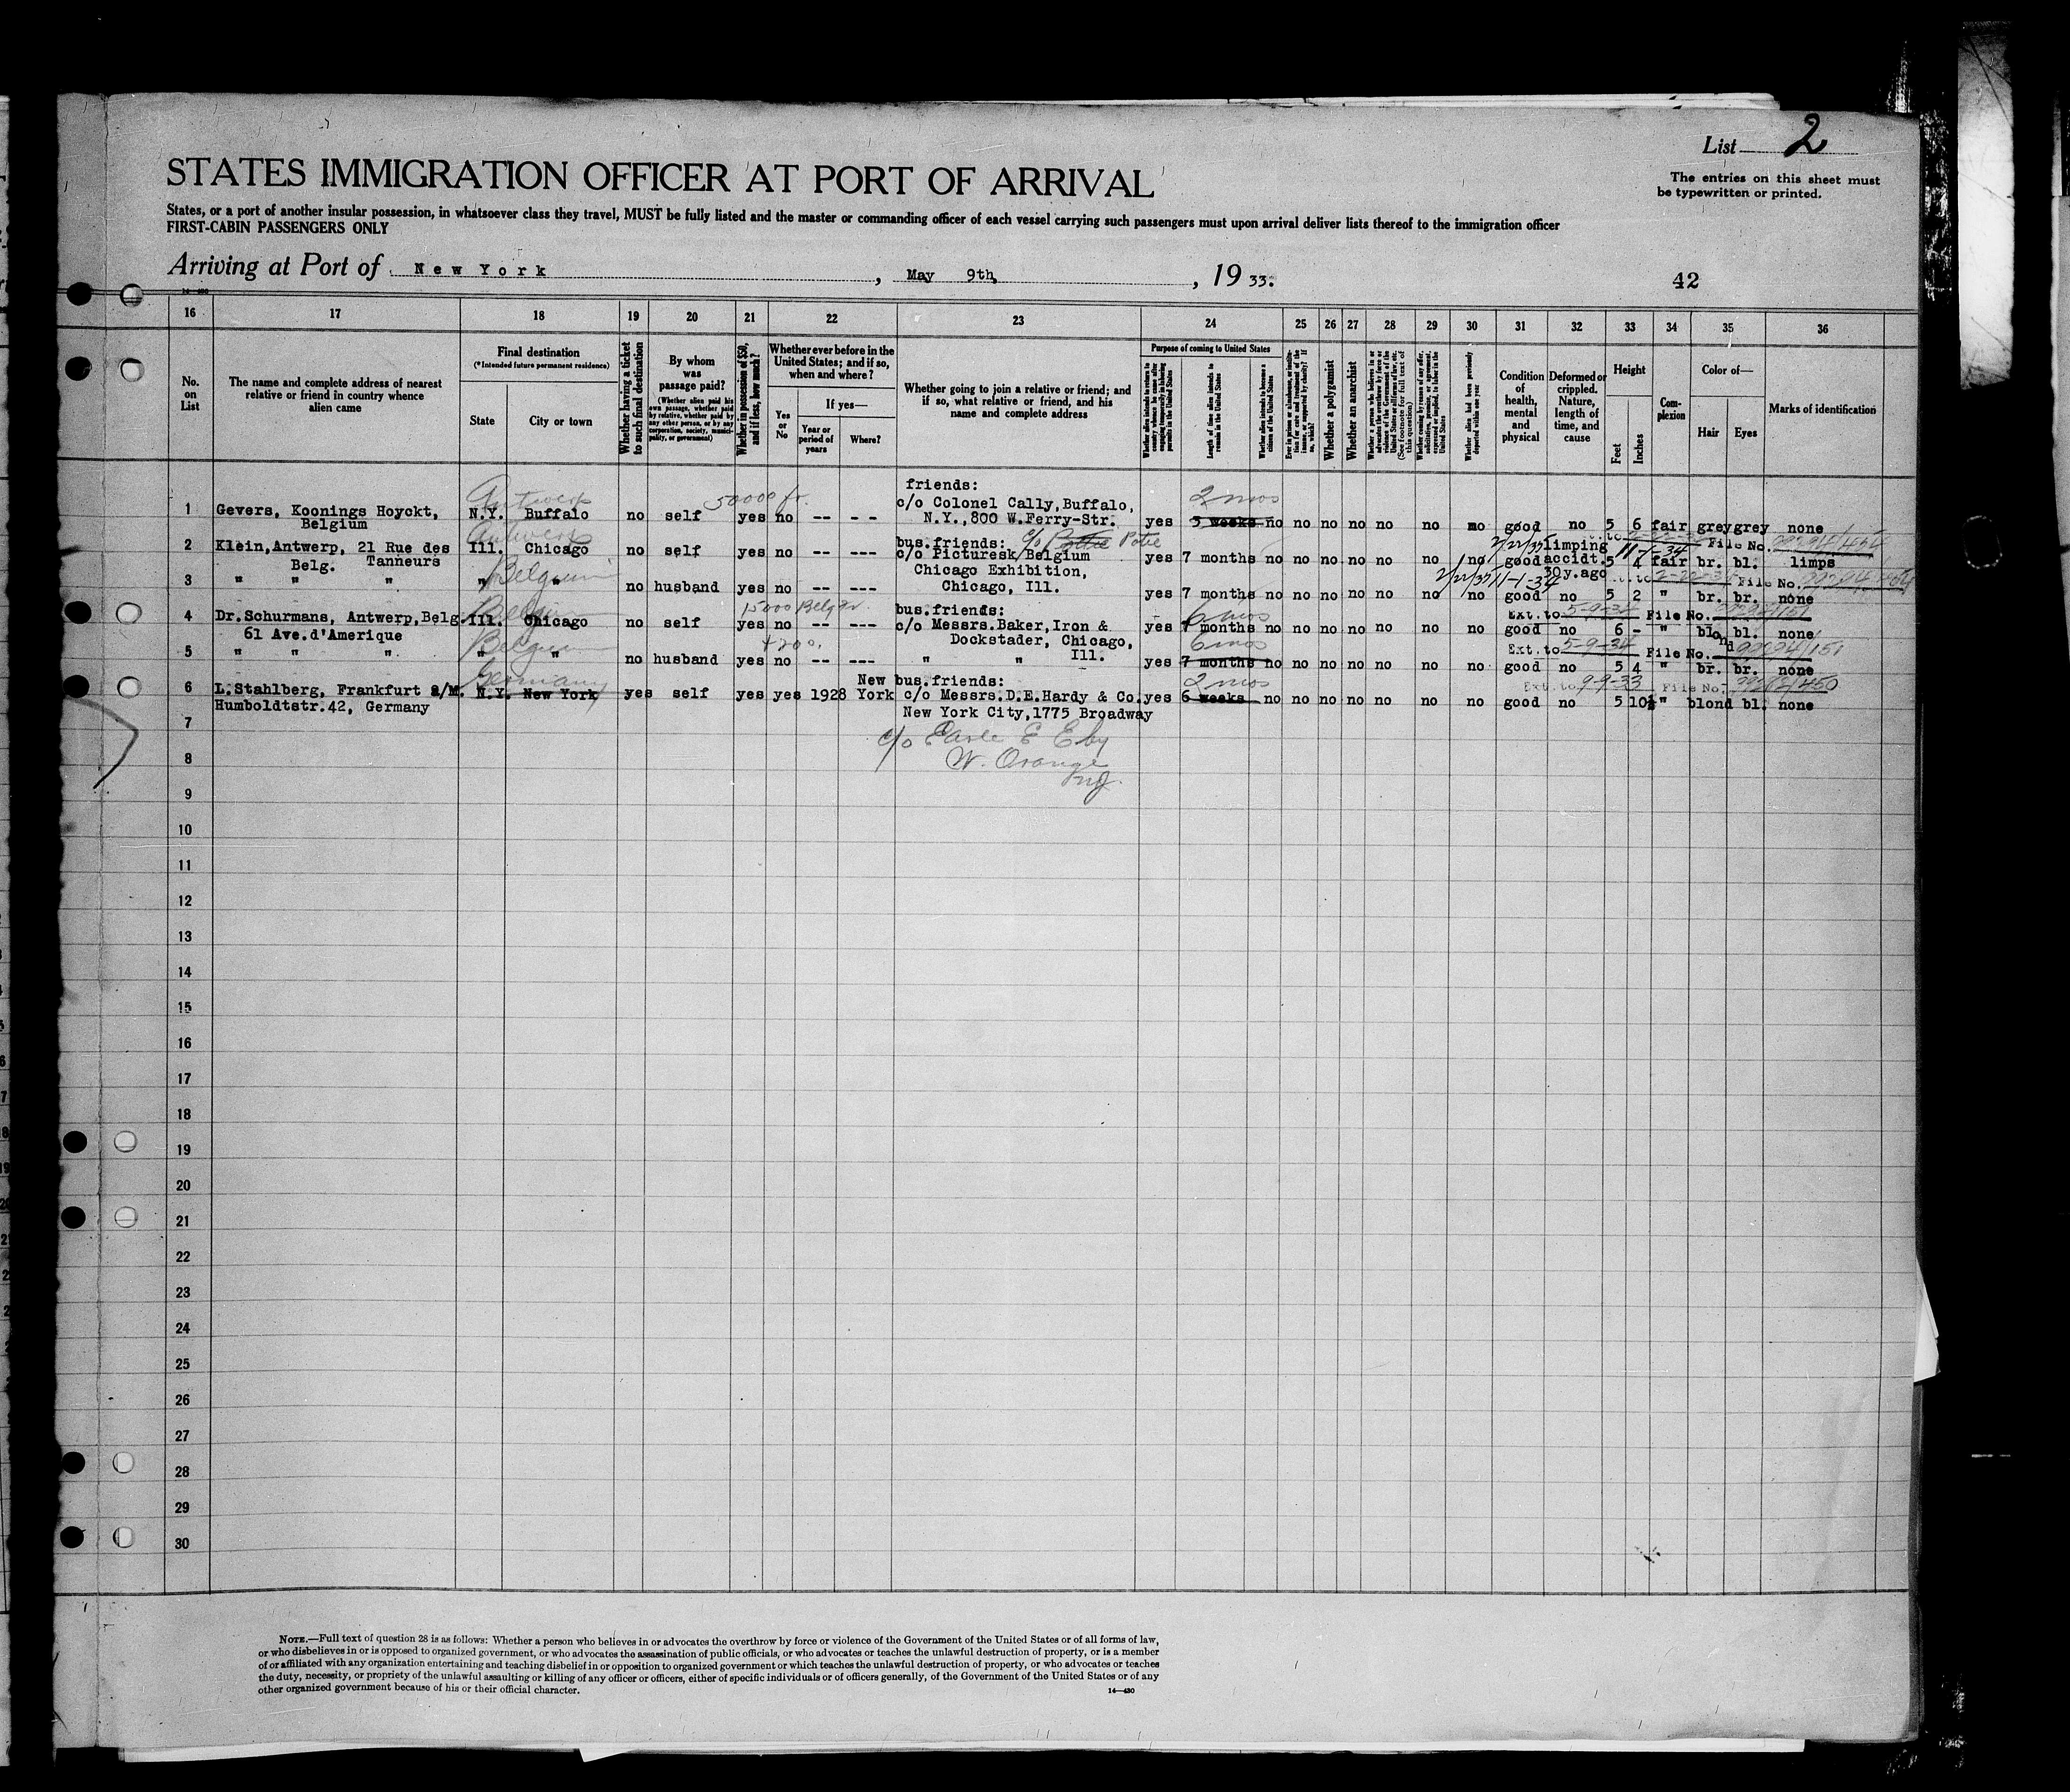 List 2
STATES IMMIGRATION OFFICER AT PORT OF ARRIVAL
The entries on this sheet must
be typewritten or printed.
States, or a port of another insular possession, in whatsoever class they travel, MUST be fully listed and the master or commanding officer of each vessel carrying such passengers must upon arrival deliver lists thereof to the immigration officer
FIRST-CABIN PASSENGERS ONLY
Arriving at Port of New York, May 9th, 1933.
42
16 17 18 19 20 21 22 23 24 25 26 27 28 29 30 31 32 33 34 35 36
No. on List
The name and complete address of nearest relative or friend in country whence alien came
Final destination
(*Intended future permanent residence)
State
City or town
Whether having a ticket to such final destination
By whom was passage paid?
(Whether alien paid his own passage, whether paid by relative, whether paid by any other person, or by any corporation, society, municipality, or government)
Whether in possession of $50, and if less, how much?
Whether ever before in the United States; and if so, when and where?
Yes or No
If yes—
Year or period of years
Where?
Whether going to join a relative or friend; and if so, what relative or friend, and his name and complete address
Purpose of coming to United States
Length of time alien intends to remain in the United States
Whether alien intends to become a citizen of the United States
Whether a polygamist
Whether an anarchist
Whether alien had been previously deported within one year
Condition of health, mental and physical
Deformed or crippled. Nature, length of time, and cause
Height
Feet
Inches
Complexion
Color of—
Hair
Eyes
Marks of identification
Antwerp 50000 fr. friends: 2 mos
1 Gevers, Koonings Hoyckt, N.Y. Buffalo no self yes no -- - - c/o Colonel Cally,Buffalo, yes 3 weeks no no no no no no no good no 5 6 fair grey grey none
Belgium N.Y.,800 W.Ferry-Str.
Antwerp bus.friends: c/o Potie
2 Klein,Antwerp, 21 Rue des Ill. Chicago no self yes no -- --- c/o Picturesk Belgium yes 7 months no no no no no no no good limping 11-1-34 5 4 fair br. bl. limps
Belg. Tanneurs Chicago Exhibition, accidt. File No.
Belgium Chicago, Ill. 30y.ago
3 " " " " " no husband yes no -- --- yes 7 months no no no no no no no good no 5 2 " br. br. none
11-1-34 File No.
Belgium 15000 Belg fr. bus.friends: 6 mos Ext. to 5-9-34 File No. 99294/151
4 Dr.Schurmans, Antwerp,Belg. Ill. Chicago no self yes no -- --- c/o Messrs.Baker,Iron & yes 7 months no no no no no no no good no 6 - " blond bl. none
61 Ave.d'Amerique Dockstader, Chicago,
Belgium 6 mos Ext. to 5-9-34 File No. 99294/151
5 " " " " " no husband yes no -- --- " " Ill. yes 7 months no no no no no no no good no 5 4 " br. br. none
Germany New bus.friends: 2 mos Ext. to 9-9-33 File No.
6 L.Stahlberg, Frankfurt a/M. N.Y. New York yes self yes yes 1928 York c/o Messrs.D.E.Hardy & Co. yes 6 weeks no no no no no no no good no 5 10½ " blond bl. none
Humboldtstr.42, Germany New York City,1775 Broadway
7
c/o Earle E Eby
8
W. Orange
NJ.
9
10
11
12
13
14
15
16
17
18
19
20
21
22
23
24
25
26
27
28
29
30
NOTE.—Full text of question 28 is as follows: Whether a person who believes in or advocates the overthrow by force or violence of the Government of the United States or of all forms of law,
or who disbelieves in or is opposed to organized government, or who advocates the assassination of public officials, or who advocates or teaches the unlawful destruction of property, or is a member
of or affiliated with any organization entertaining and teaching disbelief in or opposition to organized government or which teaches the unlawful destruction of property, or who advocates or teaches
the duty, necessity, or propriety of the unlawful assaulting or killing of any officer or officers, either of specific individuals or of officers generally, of the Government of the United States or of any
other organized government because of his or their official character.
14—430